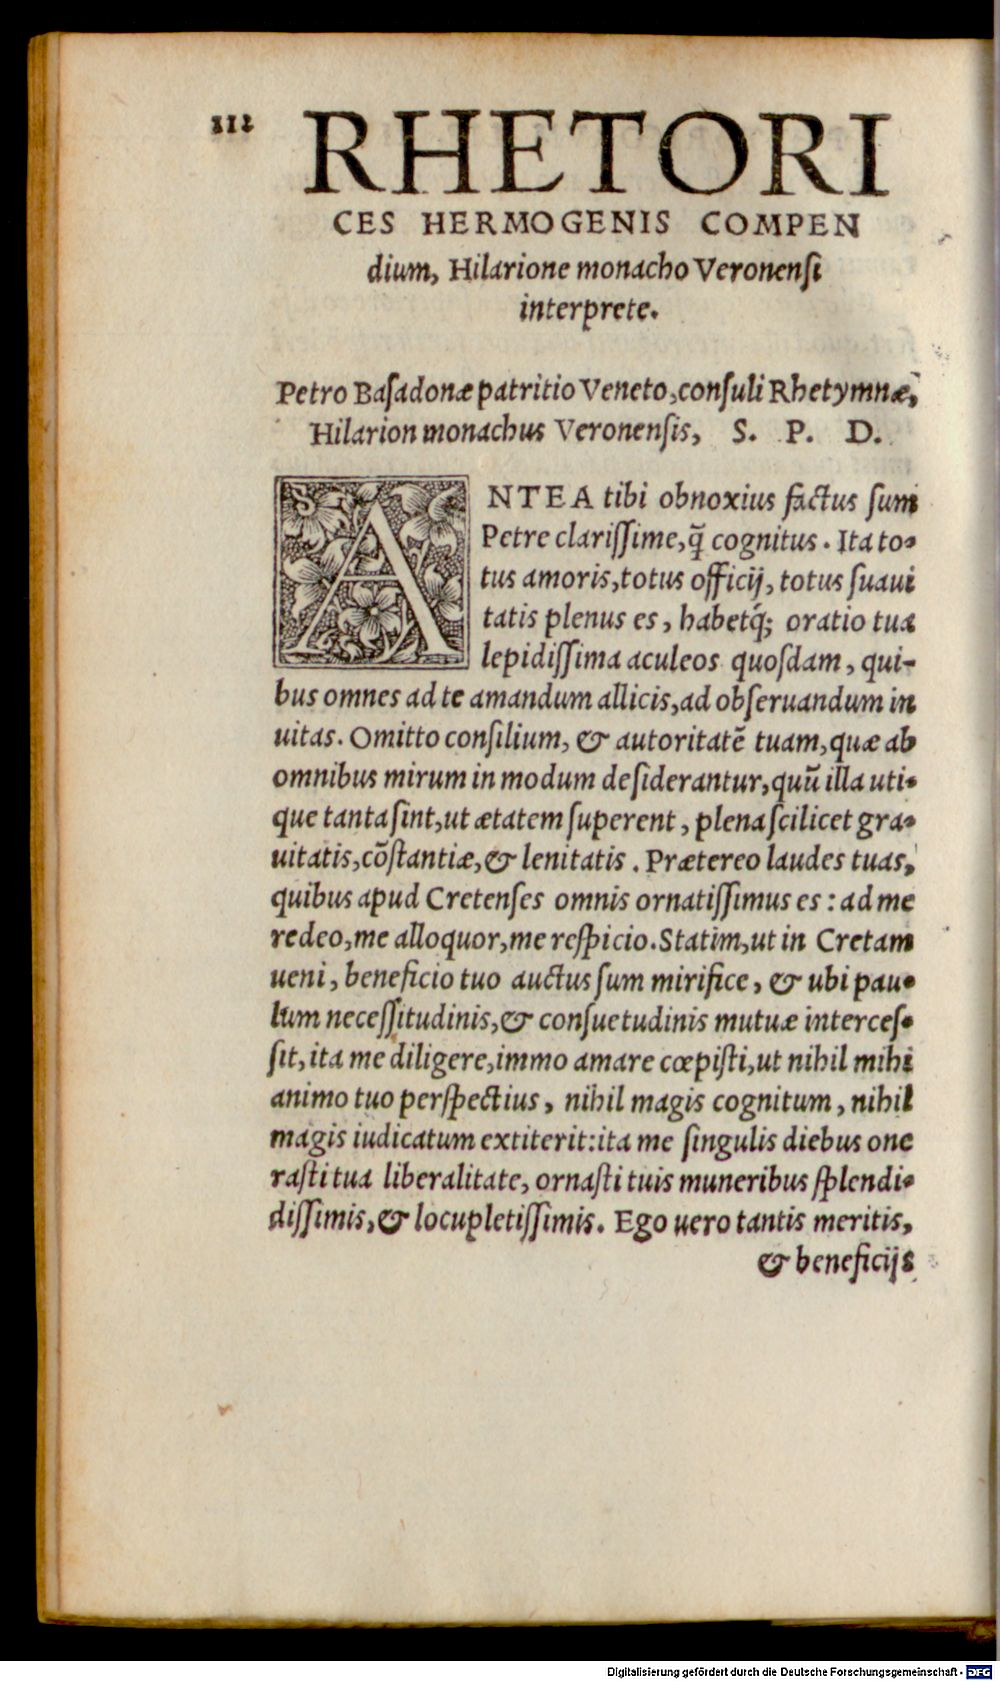 112
RHETORI
CES HERMOGENIS COMPEN
dium, Hilarione monacho Veronensi
interprete.
Petro Basadonæ patritio Veneto, consuli Rhetymnæ,
Hilarion monachus Veronensis, S. P. D.
ANTEA tibi obnoxius factus sum
Petre clarissime, q̃ cognitus. Ita to-
tus amoris, totus officij, totus suaui
tatis plenus es, habetq́; oratio tua
lepidissima aculeos quosdam, qui-
bus omnes ad te amandum allicis, ad obseruandum in
uitas. Omitto consilium, & autoritatẽ tuam, quæ ab
omnibus mirum in modum desiderantur, quũ illa uti-
que tanta sint, ut ætatem superent, plena scilicet gra-
uitatis, cõstantiæ, & lenitatis. Prætereo laudes tuas,
quibus apud Cretenses omnis ornatissimus es: ad me
redeo, me alloquor, me respicio. Statim, ut in Cretam
ueni, beneficio tuo auctus sum mirifice, & ubi pau-
lum necessitudinis, & consuetudinis mutuæ interces-
sit, ita me diligere, immo amare cœpisti, ut nihil mihi
animo tuo perspectius, nihil magis cognitum, nihil
magis iudicatum extiterit: ita me singulis diebus one
rasti tua liberalitate, ornasti tuis muneribus splendi-
dissimis, & locupletissimis. Ego uero tantis meritis,
& beneficijs
Digitalisierung gefördert durch die Deutsche Forschungsgemeinschaft - DFG